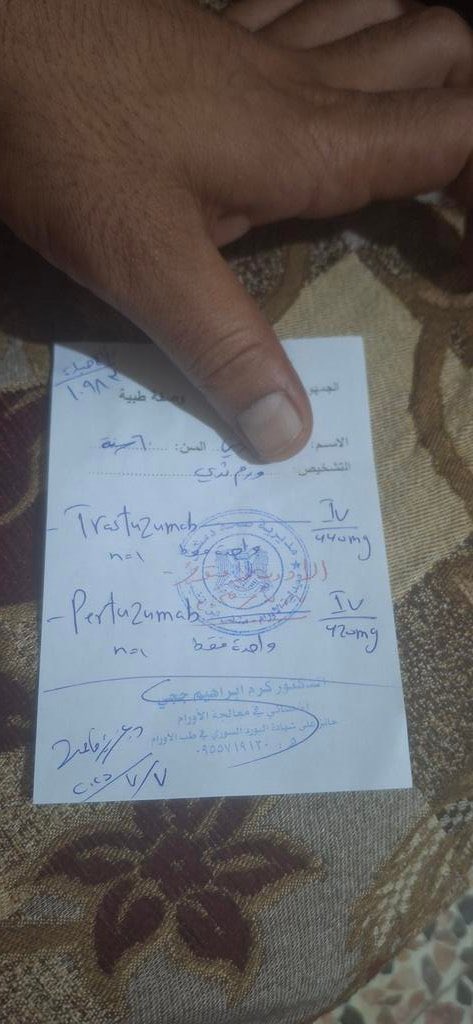 ١٠٩٨٢
الجمهور
وصفة طبية
الاسم: السن: سنة
التشخيص: ورم ثدي
- Trastuzumab IV
440mg
n=1 واحدة فقط
مديرية صحة دمشق
- Pertuzumab IV
420mg
n=1 واحدة فقط
الدكتور كرم البراهيم ججي
أخصائي في معالجة الأورام
حائز على شهادة البورد السوري في طب الأورام
٠٩٥٥٧١٩١٢٠
٢٠٢٥/٧/٧